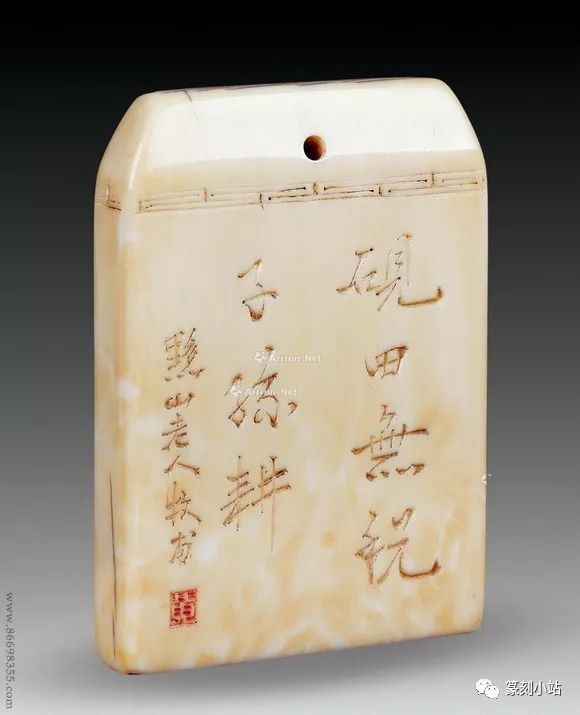 硯田無稅
子孫耕
黟山老人牧甫
黃
Artron.Net
Artron.Net
www.86698355.com
篆刻小站